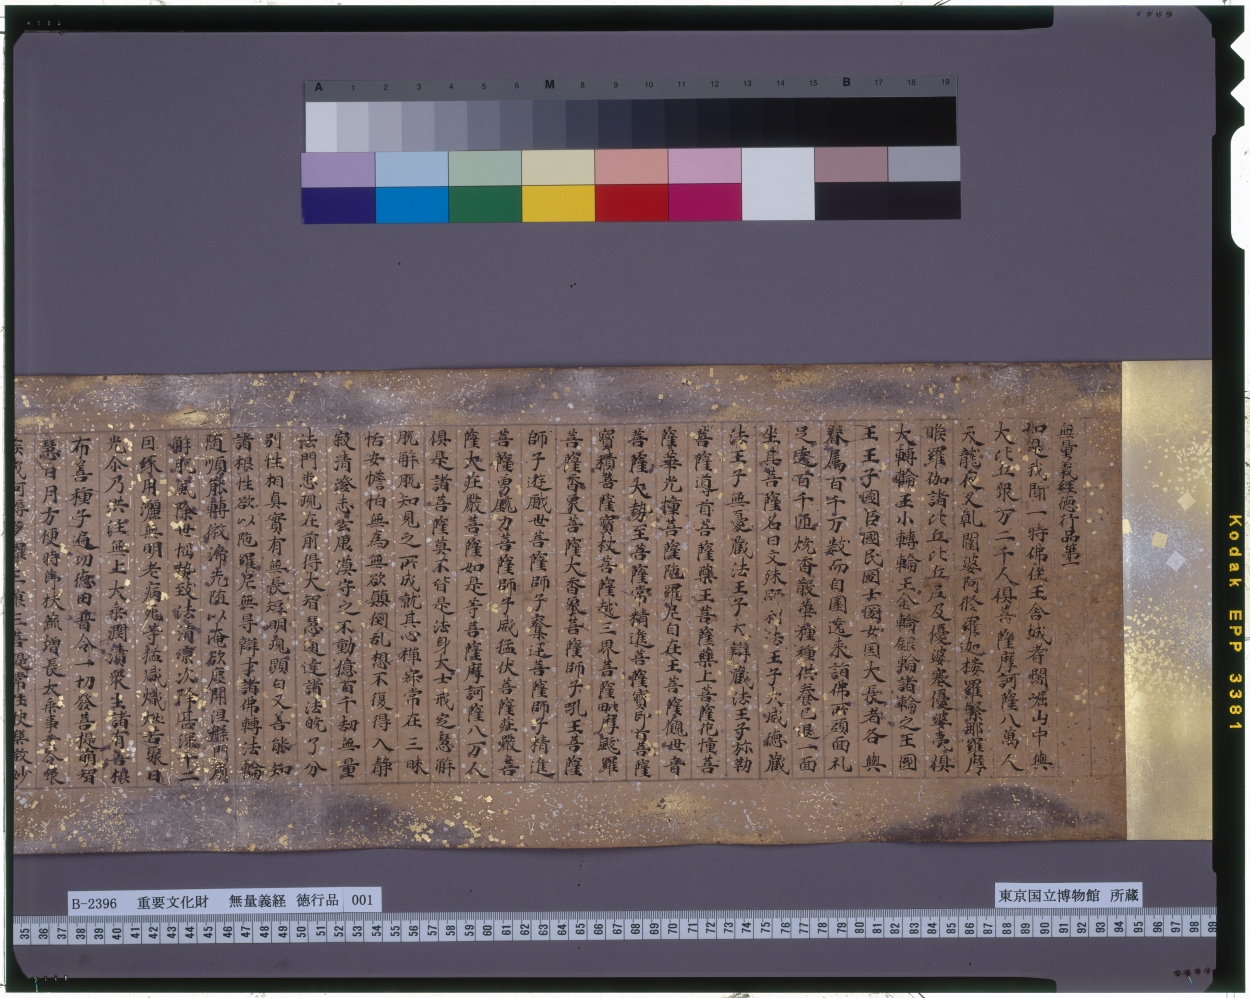 A 1 2 3 4 5 6 M 8 9 10 11 12 13 14 15 B 17 18 19
無量義経徳行品第一
如是我聞一時佛住王舎城耆闍崛山中與
大比丘衆万二千人倶菩薩摩訶薩八萬人
天龍夜叉乹闥婆阿脩羅迦楼羅緊那羅摩
睺羅伽諸比丘比丘尼及優婆塞優婆夷倶
大轉輪王小轉輪王金輪銀輪諸輪之王國
王王子國臣國民國士國女国大長者各與
眷属百千万数而自圍遶来詣佛所頭面礼
足遶百千匝焼香散華種種供養已退一面
坐其菩薩名曰文殊師利法王子大威徳藏
法王子無憂藏法王子大辯藏法王子弥勒
菩薩導首菩薩藥王菩薩藥上菩薩花幢菩
薩華光幢菩薩陁羅尼自在王菩薩觀世音
菩薩大勢至菩薩常精進菩薩寶印首菩薩
寳積菩薩寳杖菩薩越三界菩薩毗摩颰羅
菩薩香象菩薩大香象菩薩師子吼王菩薩
師子遊戯世菩薩師子奮迅菩薩師子精進
菩薩勇鋭力菩薩師子威猛伏菩薩莊嚴菩
薩大荘嚴菩薩如是等菩薩摩訶薩八万人
倶是諸菩薩莫不皆是法身大士戒定慧解
脱解脱知見之所成就其心禅寂常在三昧
恬安憺怕無為無欲顛倒乱想不復得入静
寂清澄志玄虚漠守之不動億百千劫無量
法門悉現在前得大智慧通達諸法暁了分
別性相真實有無長短明現顕白又善能知
諸根性欲以陁羅尼無㝵辯才諸佛轉法輪
随順能轉微渧先墮以淹欲塵開涅槃門扇
解脱風除世惱熱致法清凉次降甚深十二
因縁用灑無明老病死等猛盛熾然苦聚日
光尒乃洪注無上大乗潤漬衆生諸有善根
布善種子遍功徳田普令一切發菩提萌智
慧日月方便時節扶蔬増長大乗事業令衆
B-2396 重要文化財 無量義経 徳行品 001
東京国立博物館 所蔵
35 36 37 38 39 40 41 42 43 44 45 46 47 48 49 50 51 52 53 54 55 56 57 58 59 60 61 62 63 64 65 66 67 68 69 70 71 72 73 74 75 76 77 78 79 80 81 82 83 84 85 86 87 88 89 90 91 92 93 94 95 96 97 98 99
Kodak EPP 3381